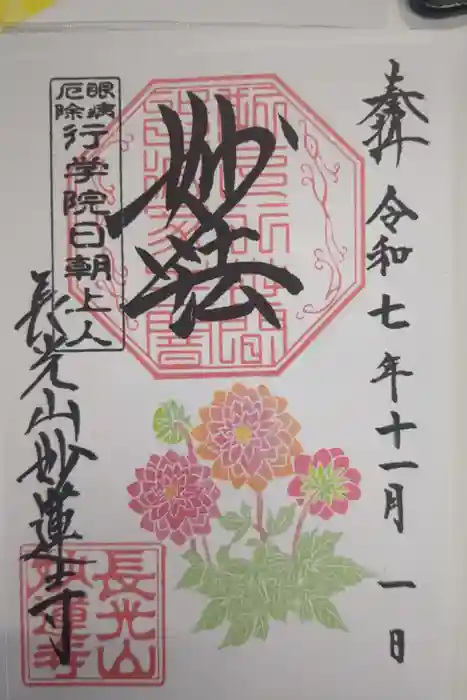 奉拝 令和七年十一月一日
妙法
眼病
厄除
行学院日朝上人
長光山妙蓮寺
長光山
妙蓮寺